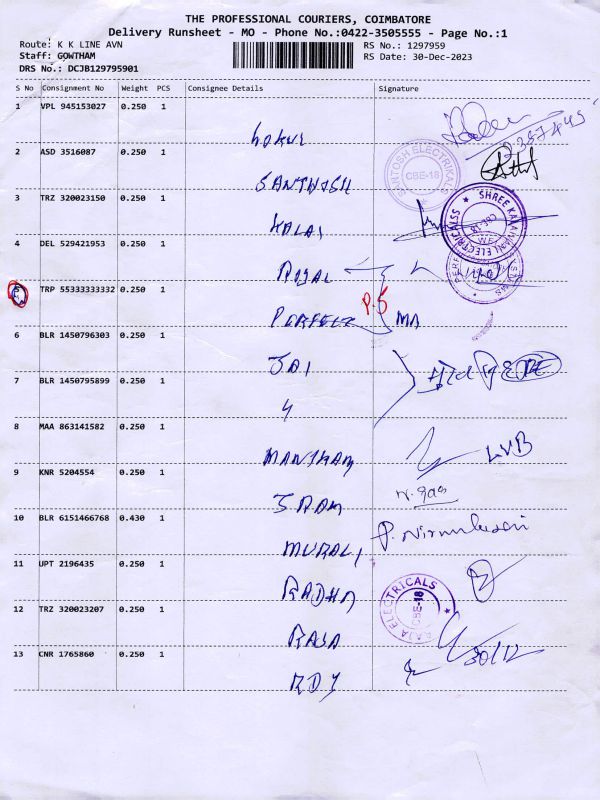 THE PROFESSIONAL COURIERS, COIMBATORE
Delivery Runsheet - MO - Phone No.:0422-3505555 - Page No.:1
Route: K K LINE AVN
RS No.: 1297959
Staff: GOWTHAM
RS Date: 30-Dec-2023
DRS No.: DCJB129795901
S No Consignment No Weight PCS Consignee Details Signature
1 VPL 945153027 0.250 1
GOKUL
2 ASD 3516087 0.250 1
SANTHOSH
SANTOSH ELECTRIKALS
CBE-18
3 TRZ 320023150 0.250 1
KALAI
SHREE KALAIVANI ELECTRICALSS
CBE-18
4 DEL 529421953 0.250 1
ROYAL
5 TRP 55333333332 0.250 1
P.5
PERFECT MA
6 BLR 1450796303 0.250 1
JAI
7 BLR 1450795899 0.250 1
4
8 MAA 863141582 0.250 1
MANTHAM LVB
9 KNR 5204554 0.250 1
SRAM
10 BLR 6151466768 0.430 1
MURALI
11 UPT 2196435 0.250 1
RADHA
RAJA ELECTRICALS
CBE-18
12 TRZ 320023207 0.250 1
RAJA
30/12
13 CNR 1765860 0.250 1
RDY